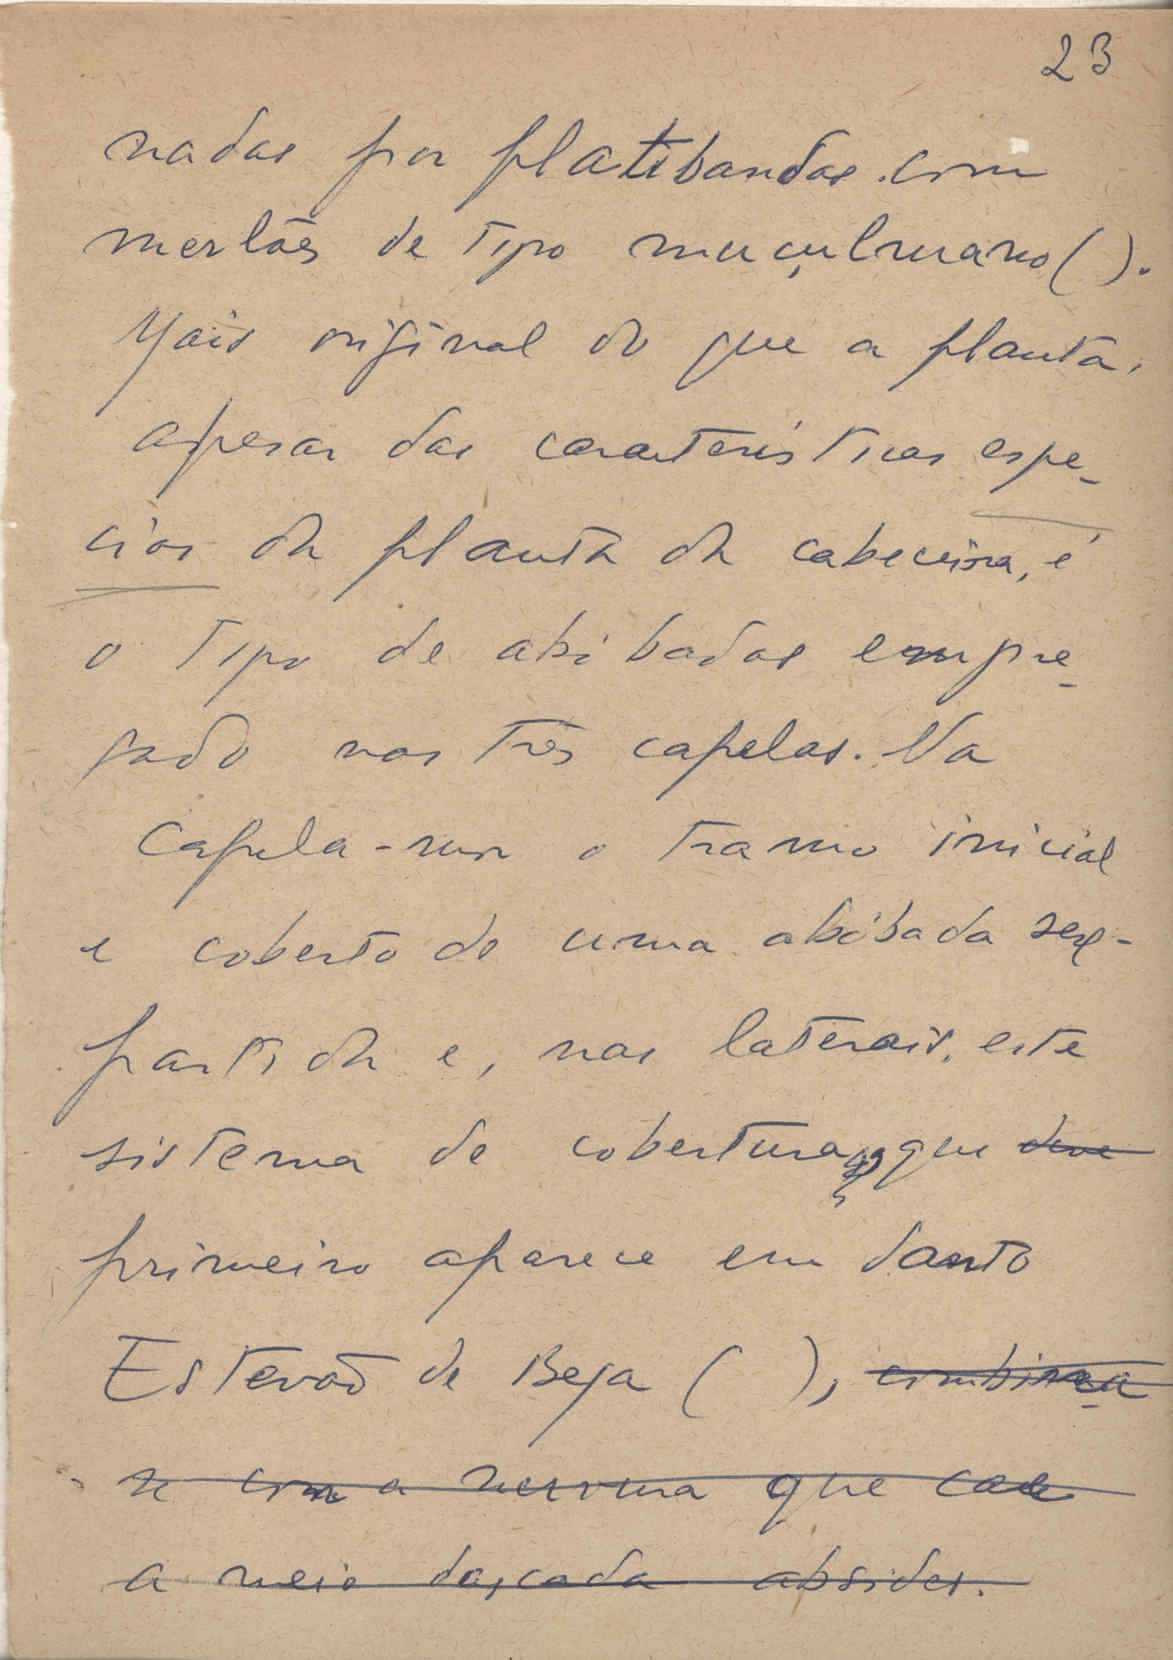 23
nadas por platibandas com
merlões de tipo muçulmano ( ).
Mais original do que a planta,
apesar das características espe-
ciais da planta da cabeceira, é
o tipo de abóbadas empre-
gado nas três capelas. Na
capela-mor o tramo inicial
é coberto de uma abóbada sex-
partida e, nas laterais, este
sistema de cobertura, que deve
primeiro aparece em Santo
Estevão de Beja ( ), combina
se com a nervura que cae
a meio das cada absides.